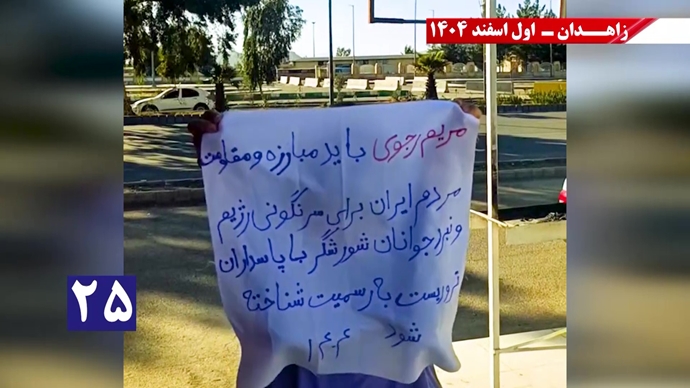 زاهدان - اول اسفند ۱۴۰۴
مریم رجوی باید مبارزه و مقاومت
مردم ایران برای سرنگونی رژیم
و نبرد جوانان شورشگر با پاسداران
تروریست به رسمیت شناخته
شود ۱۴۰۴
۲۵